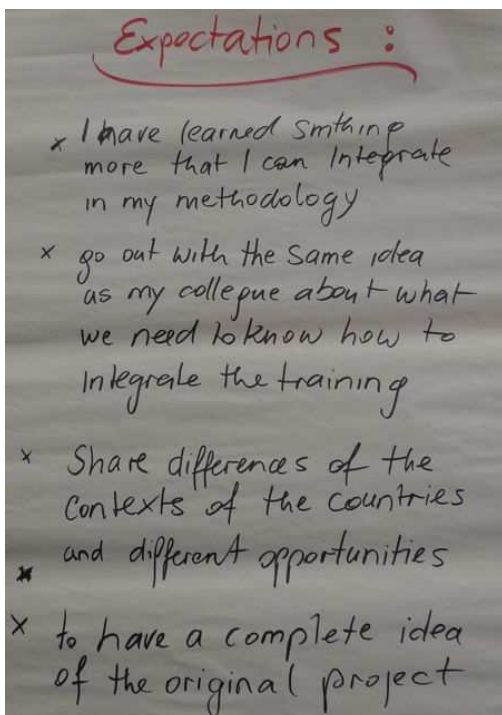 Expectations :
x I have learned smthing
more that I can Integrate
in my methodology
x go out with the same idea
as my collegue about what
we need to know how to
Integrate the training
x Share differences of the
Contexts of the countries
and different opportunities
x
x to have a complete idea
of the original project